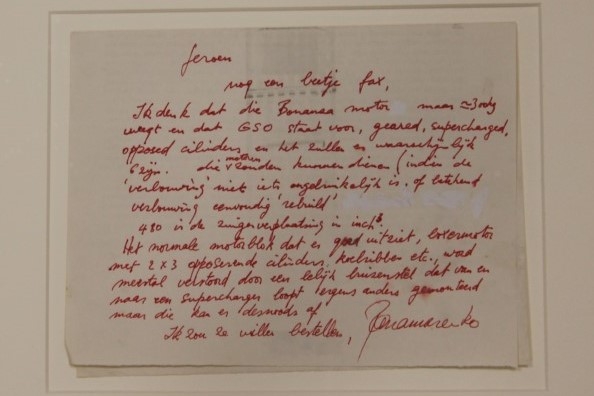 Jeroen
nog een beetje fax,
Ik denk dat die Bonanza motor maar ≃ 300kg
weegt en dat GSO staat voor, geared, supercharged,
opposed cilinders en het zullen er waarschijnlijk
6 zijn. die motoren zouden kunnen dienen (indien de
'verbouwing' niet iets ongelukkigs is. of betekend
verbouwing eenvoudig 'rebuild'
480 is de zuigerverplaatsing in inch³
Het normale motorblok dat er goed uitziet, boxermotor
met 2x3 opposerende cilinders, koelribben etc., word
meestal verstoord door een lelijk buizenstel dat van en
naar een supercharger loopt ergens anders gemonteerd
maar die kan er desnoods af
Ik zou ze willen bestellen, Panamarenko